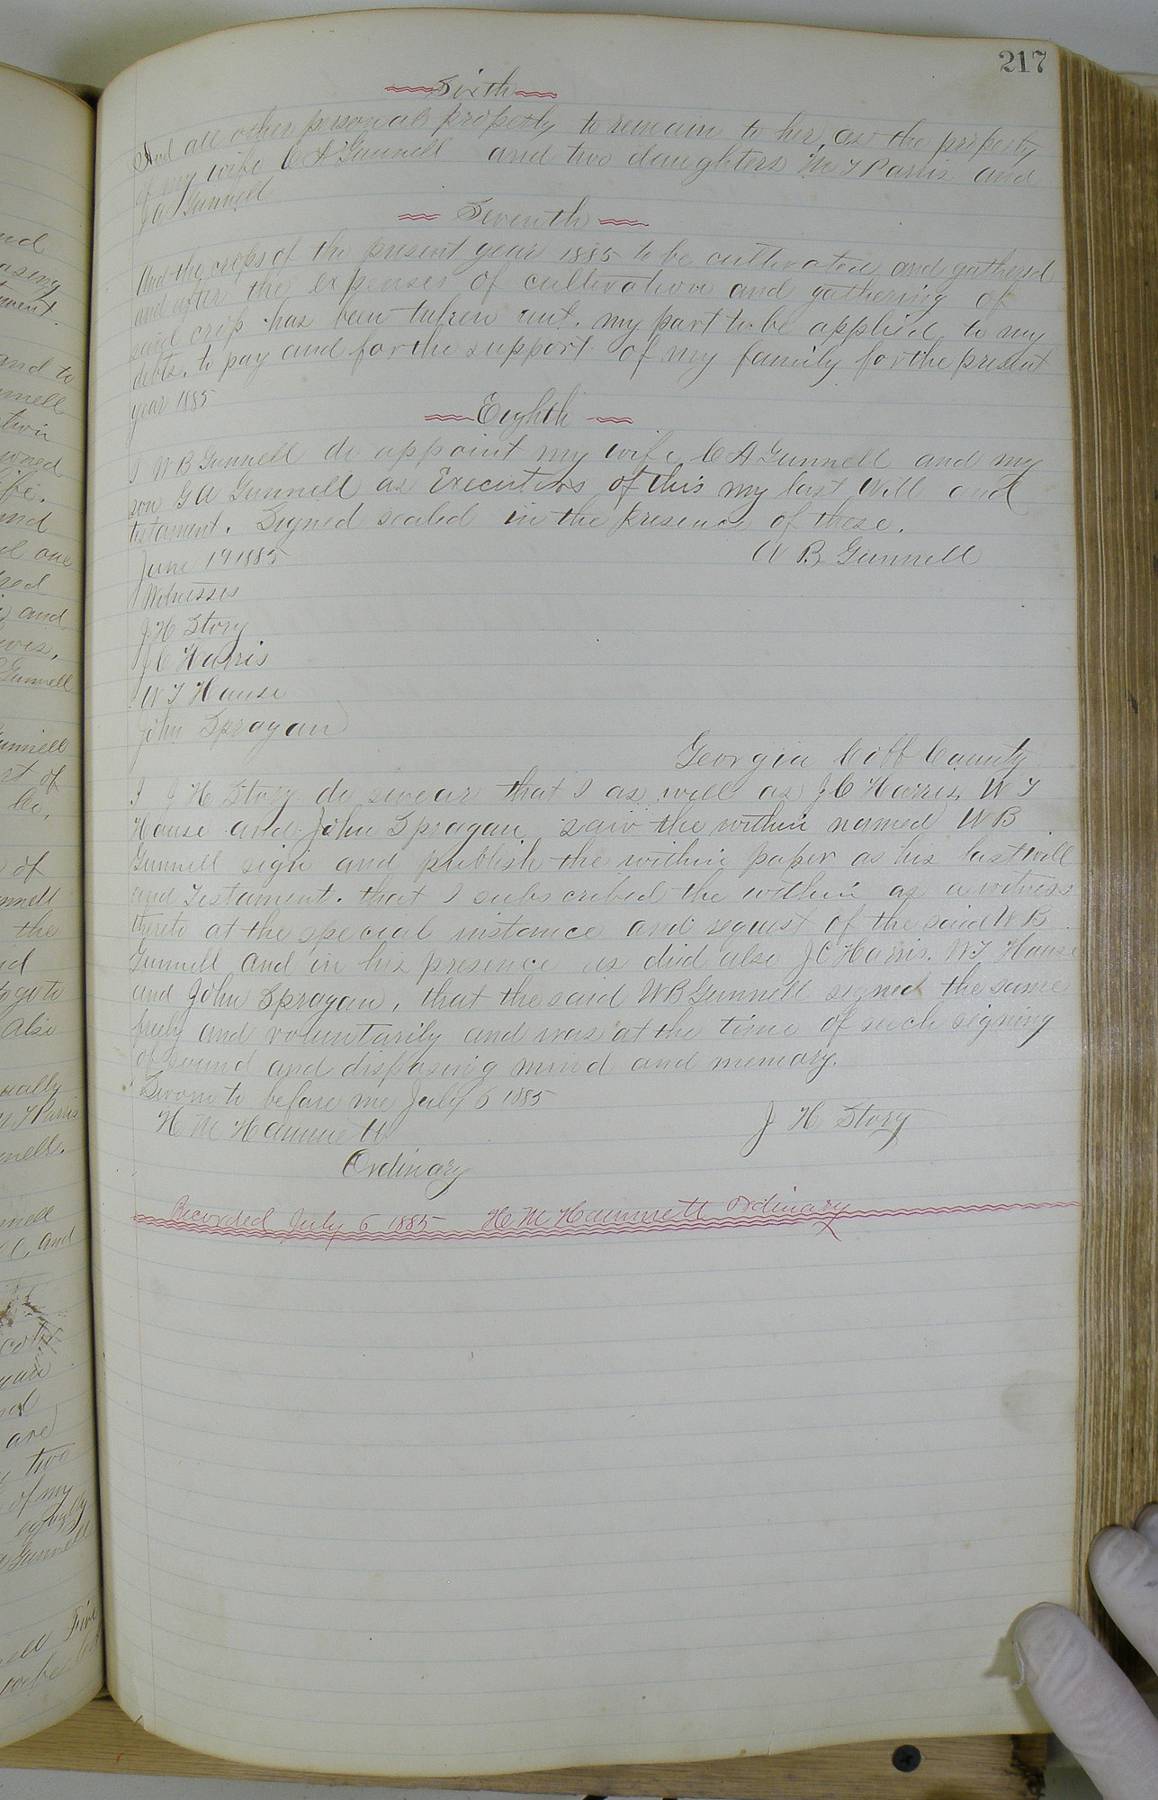 217
Sixth
And all other personal property to remain to her, as the property
of my wife C A Gunnell and two daughters M T Parris and
J A Gunnell
Seventh
And the crops of the present year 1885 to be cultivated and gathered
and after the expenses of cultivation and gathering of
said crop has been taken out. my part to be applied to my
debts. to pay and for the support of my family for the present
year 1885
Eighth
I W B Gunnell do appoint my wife C A Gunnell and my
son G A Gunnell as Executors of this my last Will and
testament. Signed sealed in the presence of these.
June 19 1885 W B Gunnell
Witnesses
J H Story
J C Harris
W T Hause
John Spragan
Georgia Cobb County
I J H Story do swear that I as well as J C Harris, W T
Hause and John Spragan, saw the within named W B
Gunnell sign and publish the within paper as his last will
and Testament. that I subscribed the within as a witness
thereto at the special instance and request of the said W B
Gunnell and in his presence as did also J C Harris. W T Hause
and John Spragan, that the said W B Gunnell signed the same
freely and voluntarily and was at the time of such signing
of sound and disposing mind and memory.
Sworn to before me July 6 1885
H M Hammett J H Story
Ordinary
Recorded July 6 1885 H M Hammett Ordinary